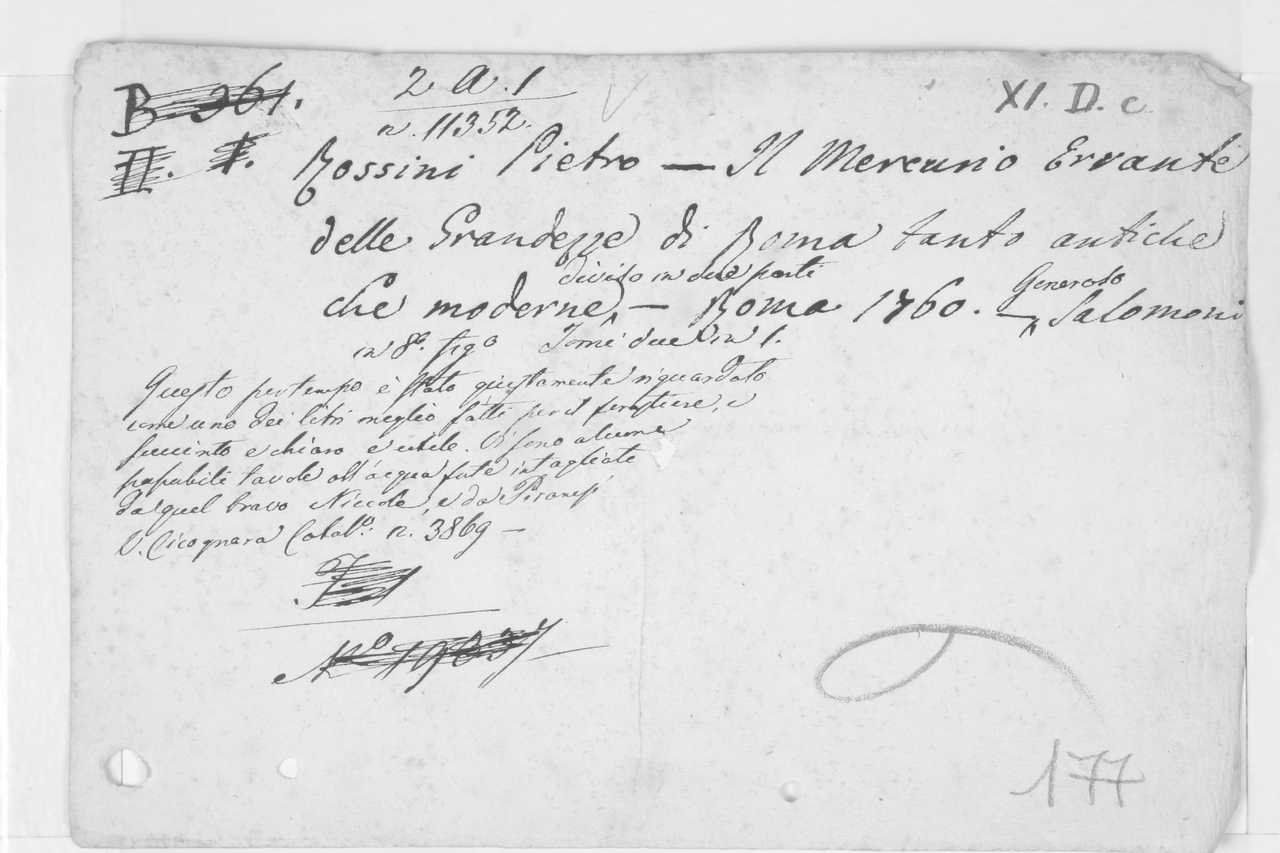 B 261. 2 A. 1 XI. D. c
n. 11352.
II. I. Rossini Pietro — Il Mercurio Errante
delle Grandezze di Roma tanto antiche
diviso in due parti Generoso
che moderne, — Roma 1760. — Salomoni
in 8º. figº Tomi due in 1.
Questo per tempo è stato giustamente riguardato
come uno dei libri meglio fatti per il forestiere, e
succinto e chiaro e utile. Vi sono alcune
papabili tavole all'acqua forte intagliate
da quel bravo Niccole, e da Piranesi
V. Cicognara Catalº. n. 3869 —
Nº
177